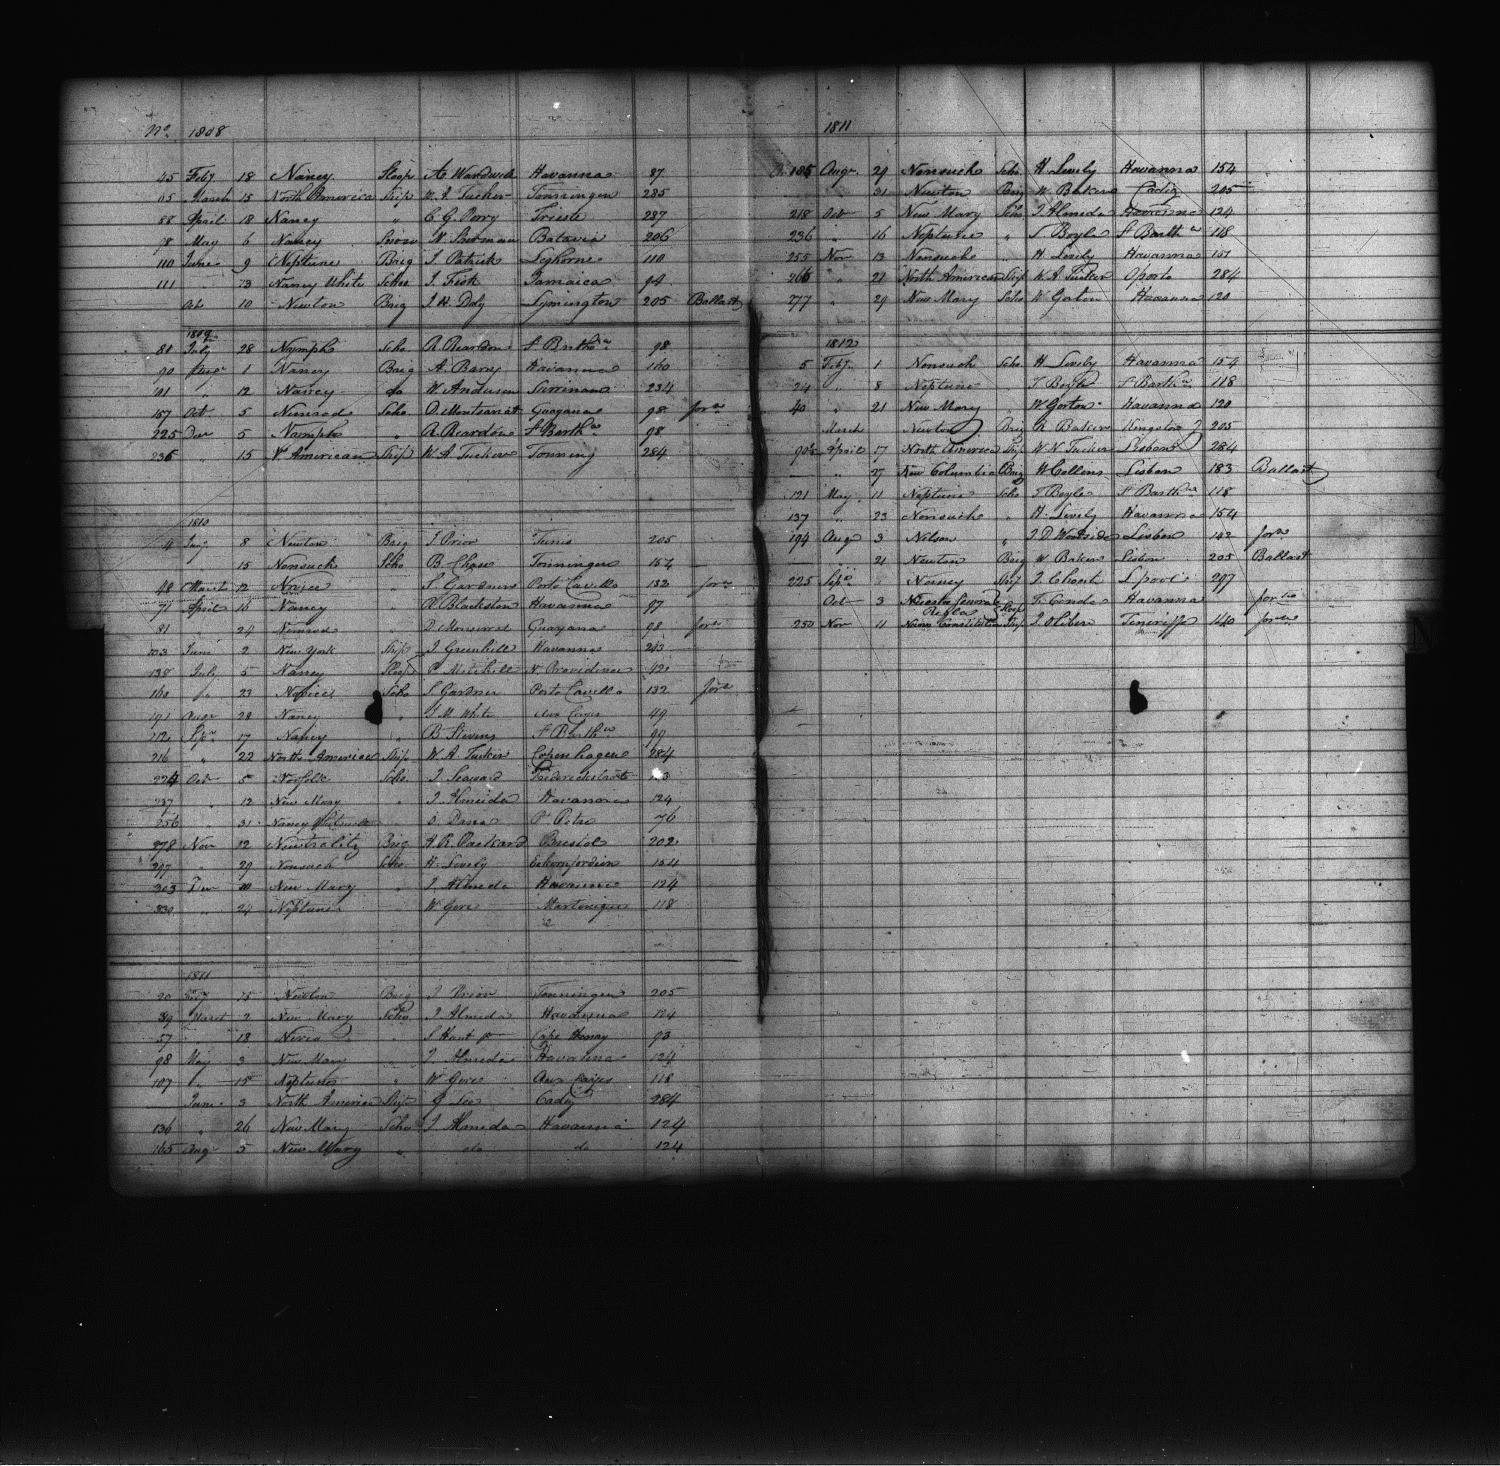 No. 1808
45 Feby 18 Nancy Sloop A Wardwell Havanna 87
65 March 15 North America Ship W. A Tucker Tonningen 285
88 April 18 Nancy " C. G. Perry Trieste 287
May 6 Nancy Snow N. Sherman Batavia 206
110 June 9 Neptune Brig J. Patrick Leghorne 110
111 23 Nancy White Scho J. Fisk Jamaica 94
Oct 10 Newton Brig J. H. Doty Lymington 205 Ballast
1809
80 July 28 Nymph Scho R Reardon St Barths 98
90 Augt 1 Nancy Brig A. Barry Havanna 160
91 " 12 Nancy do W. Anderson Surrinam 234
157 Oct 5 Nimrod Scho. D. Montserrat Guayana 98 forn
225 Dec 5 Nymph " R. Reardon St Barths 98
236 " 15 No American Ship W. A Tucker Tonning 284
1810
4 Jany 8 Newton Brig J. Prior Tunis 205
15 Nonsuch Scho B. Chase Tonningen 154
48 March 12 Novice S Gardner Porto Cavello 132 forn
71 April 16 Nancy " R Blackston Havanna 97
91 " 24 Nimrod " D. Monserrat Guayana 98 forn
103 June 2 New York Ship J Greenhill Havanna 243
138 July 5 Nancy Sloop P. Mitchell N Providence 42
160 " 23 Novice Scho S. Gardner Porto Cavello 132 forn
191 Augt 28 Nancy " J M White Aux Cayes 49
212 Sepr 17 Nancy " B Stevens St Barths 99
216 " 22 North America Ship W. A Tucker Copenhagen 284
224 Oct 5 Norfolk Scho. J Seaward Frederickstadt
237 " 12 New Mary " J. Almeida Havanna 124
256 " 31 Nancy Pt Petre 76
278 Nov 12 Neutrality Brig A. R. Packard Bristol 202
297 " 29 Nonsuch Scho H. Lively Eckernfordein 154
303 Dec 10 New Mary " J. Almeida Havanna 124
330 " 24 Neptune " W Gore Martinique 118
1811
20 15 Newton Brig J. Prior Tonningen 205
39 March 2 New Mary Scho J Almeida Havanna 124
57 " 18 S Hunt Jr Cape Henry 93
98 May 3 New Mary J. Almeida Havanna 124
107 " 15 Neptune " W Gore Aux Cayes 118
June 3 North America Ship Cadiz 284
136 " 26 New Mary Scho J Almeida Havanna 124
165 Aug 5 New Mary " do do 124
1811
185 Augt 29 Nonsuch Scho. H Lively Havanna 154
31 Newton Brig W Baker Cadiz 205
218 Oct 5 New Mary Scho J Almeida Havanna 124
236 " 16 Neptune " T Boyle St Barths 118
255 Nov 13 Nonsuch " H Lively Havanna 151
266 " 21 North American Ship W. A. Tucker Oporto 284
277 " 29 New Mary Scho W Gorton Havanna 120
1812
5 Feby. 1 Nonsuch Scho. H Lively Havanna 154
24 " 8 Neptune T Boyle St Barths 118
40 " 21 New Mary W Gorton Havanna 120
March Newton Brig Baker Kingston J 205
90 April 17 North America Ship W. Tucker Lisbon 284
" 27 New Columbia Brig W Collins Lisbon 183 Ballast
121 May 11 Neptune Scho T Boyle St Barths 118
137 " 23 Nonsuch " H. Lively Havanna 154
194 Aug 3 Nelson " J. D. Woodside Lisbon 142 forn
21 Newton Brig W Baker Lisbon 205 Ballast
225 Sepr Ship J. Choate Lpool 297
Oct 3 Nuestra Senora Regla Sloop F. Conda Havanna forn
250 Nov 11 Nueva Constitution Ship J Oliber Teneriffe 140 forn